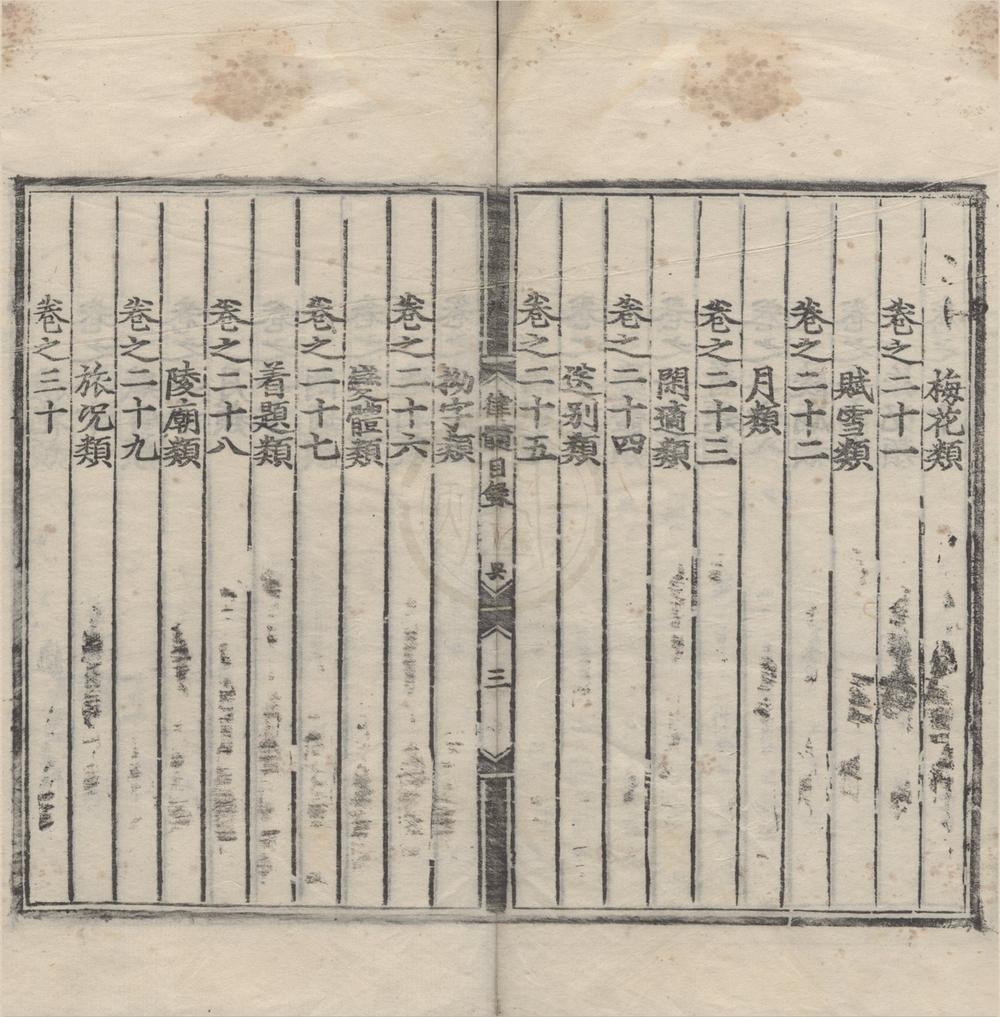 梅花類
卷之二十一
賦雪類
卷之二十二
月類
卷之二十三
閑適類
卷之二十四
送別類
卷之二十五
律髓目錄
三
拗字類
卷之二十六
變體類
卷之二十七
着題類
卷之二十八
陵廟類
卷之二十九
旅況類
卷之三十